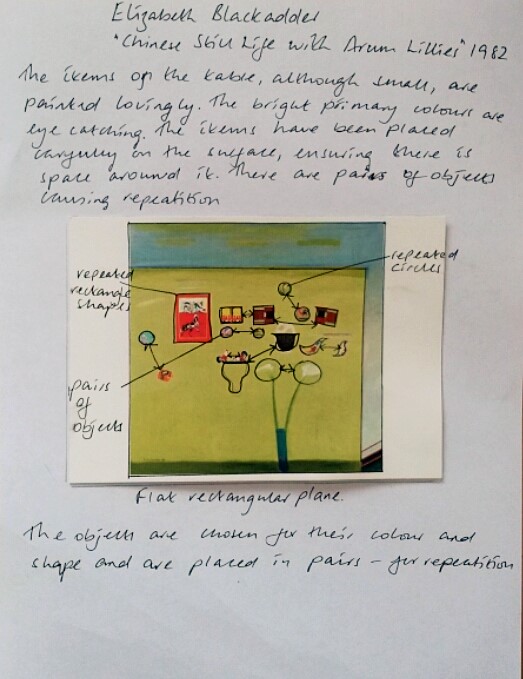 Elizabeth Blackadder
"Chinese Still Life with Arum Lillies" 1982
The items of the table, although small, are
painted lovingly. The bright primary colours are
eye catching. The items have been placed
carefully on the surface, ensuring there is
space around it. There are pairs of objects
causing repeatition
repeated
circles
repeated
rectangle
shapes
pairs
of
objects
Flat rectangular plane.
The objects are chosen for their colour and
shape and are placed in pairs – for repeatition